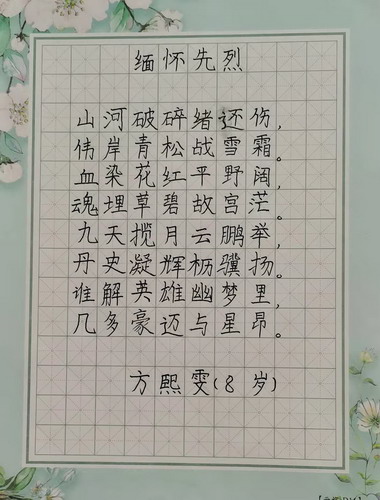 缅怀先烈
山河破碎绪还伤，
伟岸青松战雪霜。
血染花红平野阔，
魂埋草碧故宫茫。
九天揽月云鹏举，
丹史凝辉枥骥扬。
谁解英雄幽梦里，
几多豪迈与星昂。
方熙雯(8岁)